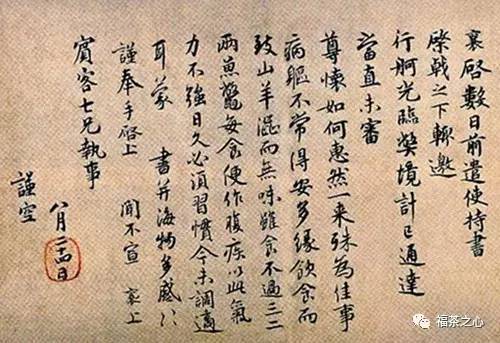 襄啓數日前遣使持書
棨戟之下輒邀
行舸光臨獘境計已通達
當直未審
尊懷如何惠然一来殊為佳事
病軀不常得安多緣飲食而
致山羊澀而無味雖食不過三二
兩魚鼈每食便作腹疾以此氣
力不強日久必須習慣今未調適
耳蒙 書并海物多感〻
謹奉手啓上 聞不宣 襄上
賓客七兄執事
八月廿四日
謹空
福茶之心